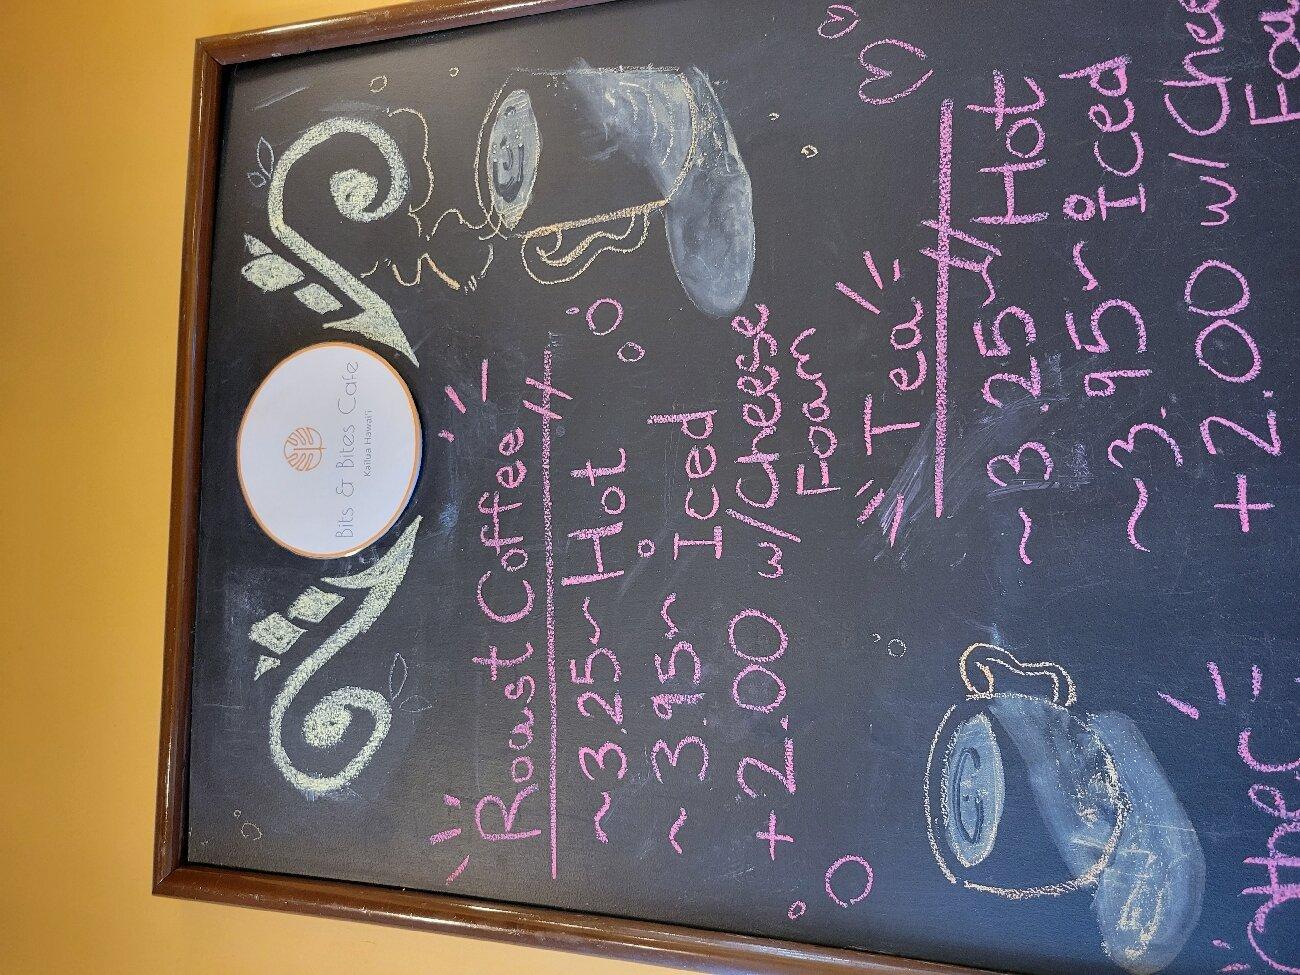 Bits & Bites Cafe
Kailua Hawai'i
Roast Coffee
~3.25~ Hot
~3.95~ Iced
+2.00 w/Cheese
Foam
Tea
~3.25~ Hot
~3.95~ Iced
+2.00 w/ Chees
Foa
Other